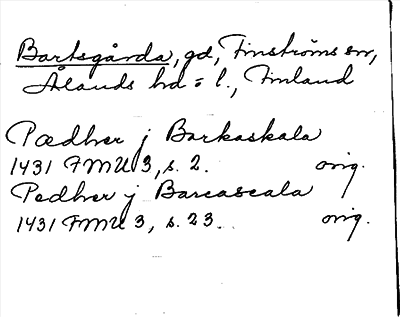 Bartsgårda, gd, Finströms sn,
Ålands hd = l., Finland
Pædher j Barkaskala
1431 FMU 3, s. 2. orig.
Pedher j Barcascala
1431 FMU 3, s. 23. orig.